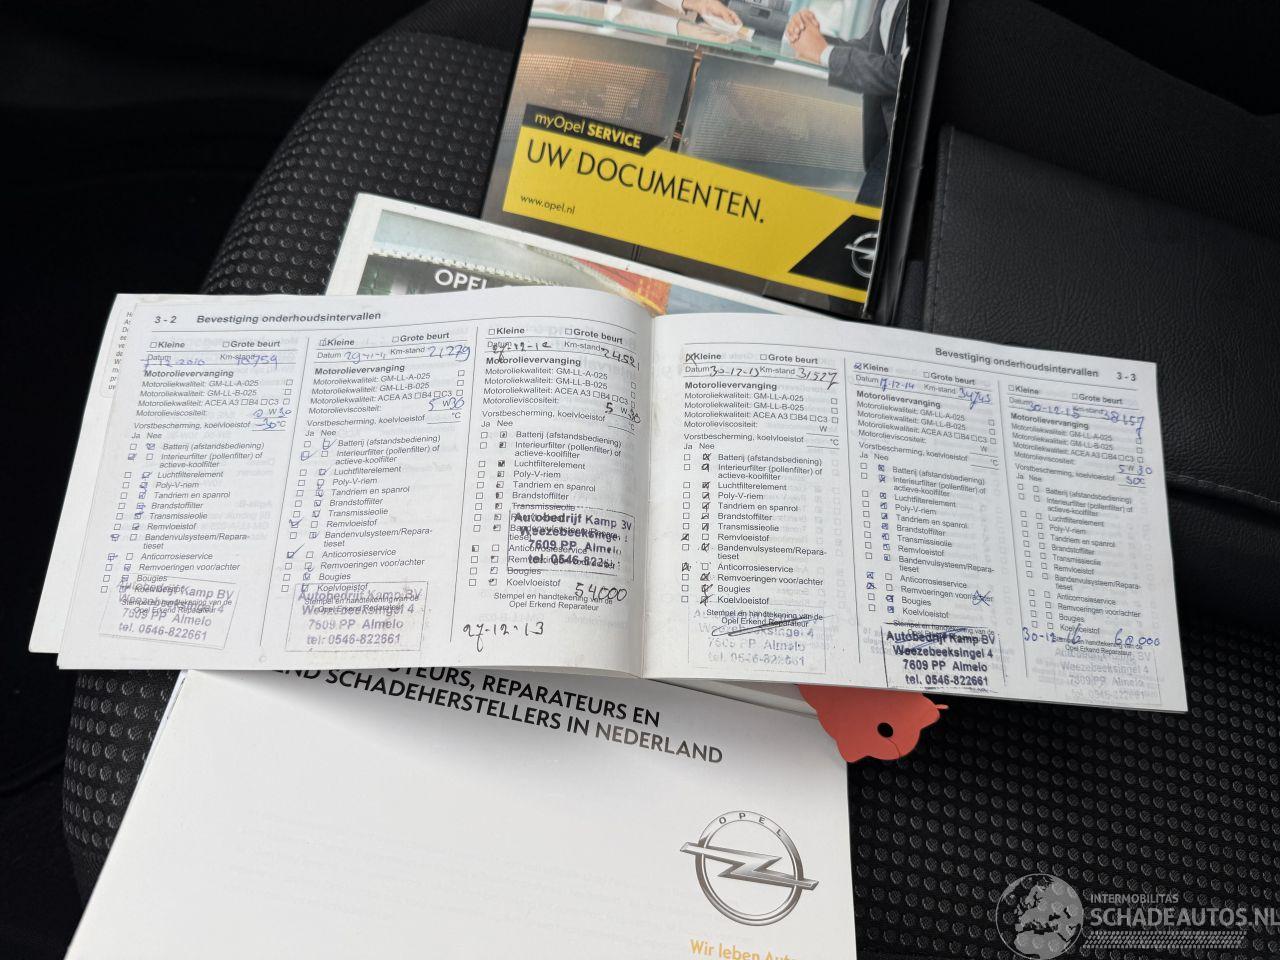 myOpel SERVICE
UW DOCUMENTEN.
www.opel.nl
OPEL
3 - 2 Bevestiging onderhoudsintervallen
Kleine Grote beurt
Datum Km-stand
Motorolievervanging
Motoroliekwaliteit: GM-LL-A-025
Motoroliekwaliteit: GM-LL-B-025
Motoroliekwaliteit: ACEA A3 B4 C3
Motorolieviscositeit: W 30
Vorstbescherming, koelvloeistof -30°C
Ja Nee
Batterij (afstandsbediening)
Interieurfilter (pollenfilter) of
actieve-koolfilter
Luchtfilterelement
Poly-V-riem
Tandriem en spanrol
Brandstoffilter
Transmissieolie
Remvloeistof
Bandenvulsysteem/Repara-
tieset
Anticorrosieservice
Remvoeringen voor/achter
Bougies
Koelvloeistof
Stempel en handtekening van de
Opel Erkend Reparateur
Autobedrijf Kamp BV
Weezebeeksingel 4
7609 PP Almelo
tel. 0546-822661
Kleine Grote beurt
Datum Km-stand 21279
Motorolievervanging
Motoroliekwaliteit: GM-LL-A-025
Motoroliekwaliteit: GM-LL-B-025
Motoroliekwaliteit: ACEA A3 B4 C3
Motorolieviscositeit: 5 W 30
Vorstbescherming, koelvloeistof °C
Ja Nee
Batterij (afstandsbediening)
Interieurfilter (pollenfilter) of
actieve-koolfilter
Luchtfilterelement
Poly-V-riem
Tandriem en spanrol
Brandstoffilter
Transmissieolie
Remvloeistof
Bandenvulsysteem/Repara-
tieset
Anticorrosieservice
Remvoeringen voor/achter
Bougies
Koelvloeistof
Stempel en handtekening van de
Opel Erkend Reparateur
Autobedrijf Kamp BV
Weezebeeksingel 4
7609 PP Almelo
tel. 0546-822661
Kleine Grote beurt
Datum Km-stand
Motorolievervanging
Motoroliekwaliteit: GM-LL-A-025
Motoroliekwaliteit: GM-LL-B-025
Motoroliekwaliteit: ACEA A3 B4 C3
Motorolieviscositeit: 5 W 30
Vorstbescherming, koelvloeistof °C
Ja Nee
Batterij (afstandsbediening)
Interieurfilter (pollenfilter) of
actieve-koolfilter
Luchtfilterelement
Poly-V-riem
Tandriem en spanrol
Brandstoffilter
Transmissieolie
Autobedrijf Kamp BV
Weezebeeksingel
7609 PP Almelo
tel. 0546-8226
Anticorrosieservice
Remvoeringen voor/achter
Bougies
Koelvloeistof 54000
Stempel en handtekening van de
Opel Erkend Reparateur
27-12-13
Bevestiging onderhoudsintervallen 3 - 3
Kleine Grote beurt
Datum 30-12-13 Km-stand 31527
Motorolievervanging
Motoroliekwaliteit: GM-LL-A-025
Motoroliekwaliteit: GM-LL-B-025
Motoroliekwaliteit: ACEA A3 B4 C3
Motorolieviscositeit: W
Vorstbescherming, koelvloeistof °C
Ja Nee
Batterij (afstandsbediening)
Interieurfilter (pollenfilter) of
actieve-koolfilter
Luchtfilterelement
Poly-V-riem
Tandriem en spanrol
Brandstoffilter
Transmissieolie
Remvloeistof
Bandenvulsysteem/Repara-
tieset
Anticorrosieservice
Remvoeringen voor/achter
Bougies
Koelvloeistof
Stempel en handtekening van de
Opel Erkend Reparateur
Weezebeeksingel 4
7609 PP Almelo
tel. 0546-822661
Kleine Grote beurt
Datum Km-stand 34743
Motorolievervanging
Motoroliekwaliteit: GM-LL-A-025
Motoroliekwaliteit: GM-LL-B-025
Motoroliekwaliteit: ACEA A3 B4 C3
Motorolieviscositeit: W
Vorstbescherming, koelvloeistof °C
Ja Nee
Batterij (afstandsbediening)
Interieurfilter (pollenfilter) of
actieve-koolfilter
Luchtfilterelement
Poly-V-riem
Tandriem en spanrol
Brandstoffilter
Transmissieolie
Remvloeistof
Bandenvulsysteem/Repara-
tieset
Anticorrosieservice
Remvoeringen voor/achter
Bougies
Koelvloeistof
Autobedrijf Kamp BV
Weezebeeksingel 4
7609 PP Almelo
tel. 0546-822661
Kleine Grote beurt
Datum 30-12-15 Km-stand
Motorolievervanging
Motoroliekwaliteit: GM-LL-A-025
Motoroliekwaliteit: GM-LL-B-025
Motoroliekwaliteit: ACEA A3 B4 C3
Motorolieviscositeit: 5 W 30
Vorstbescherming, koelvloeistof
Ja Nee
Batterij (afstandsbediening)
Interieurfilter (pollenfilter) of
actieve-koolfilter
Luchtfilterelement
Poly-V-riem
Tandriem en spanrol
Brandstoffilter
Transmissieolie
Remvloeistof
Bandenvulsysteem/Repara-
tieset
Anticorrosieservice
Remvoeringen voor/achter
Bougies
Koelvloeistof
30-12-16 60.000
Stempel en handtekening van de
Opel Erkend Reparateur
Autobedrijf Kamp BV
Weezebeeksingel 4
7609 PP Almelo
tel. 0546-822661
REPARATEURS EN
SCHADEHERSTELLERS IN NEDERLAND
OPEL
Wir leben
INTERMOBILITAS
SCHADEAUTOS.NL